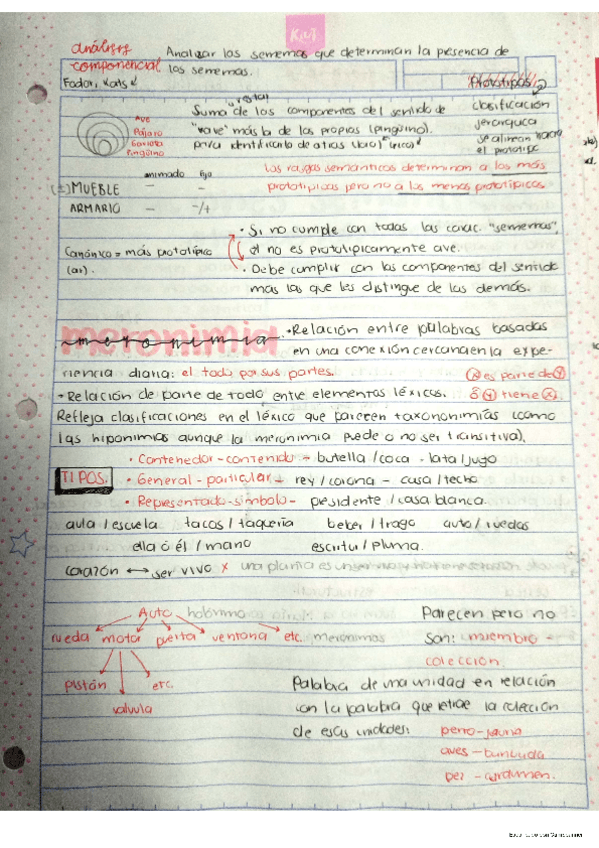 KIUT
análisis Analizar los sememas que determinan la presencia de
componencial los sememas.
Fodor, Kats Prototipos
Suma de los componentes del sentido de clasificación
"ave" más la de los propios (pingüino). jerarquica
para identificarlo de otras se alinean hacia
el prototipo
Ave
Pájaro
Gaviota
Pingüino
animado fijo
los rasgos semánticos determinan a los más
(±) MUEBLE – – prototípicos pero no a los menos prototípicos
ARMARIO – -/+
• Si no cumple con todas las carac. "sememas",
él no es prototípicamente ave.
Canónico = más prototípico
(ar).
• Debe cumplir con los componentes del sentido
mas las que les distingue de las demás.
meronimia • Relación entre palabras basadas
en una conexión cercana en la expe-
riencia diaria: el todo por sus partes. X es parte de Y
• Relación de parte de todo entre elementos léxicos. ó Y tiene X
Refleja clasificaciones en el léxico que parecen taxonomías (como
las hiponimias aunque la meronimia puede o no ser transitiva).
TIPOS.
• Contenedor-contenido → butella / coca - lata / jugo
• General - particular → rey / corona - casa / techo
• Representado-simbolo - presidente / casa blanca.
aula / escuela tacos / taquería beber / trago auto / ruedas
ella o él / mano escritur / pluma.
corazón ↔ ser vivo x una planta es un ser
Auto holónimo Parecen pero no
rueda motor puerta ventana etc. meronimos son: miembro -
colección.
pistón etc.
valvula
Palabra de una unidad en relación
con la palabra que retrae la colección
de esas unidades: perro - jauría
aves - bandada
pez - cardumen.